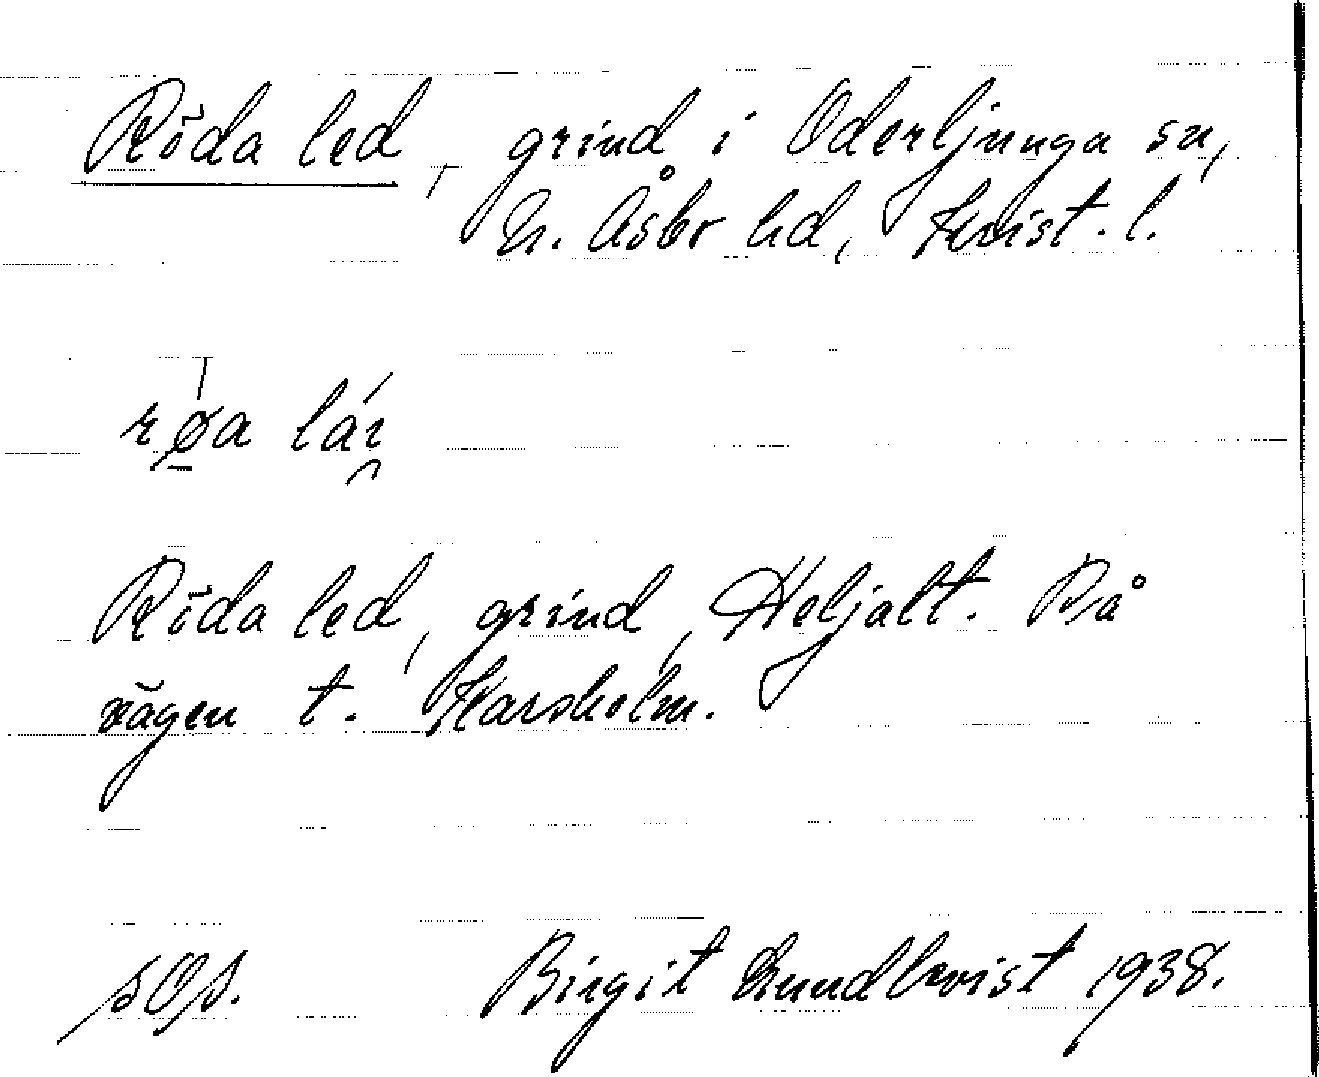 Röda led, grind i Oderljunga sn,
N. Åsbo hd, Krist. l.
Röda led, grind, Heljalt. På
vägen t. Karsholm.
SOA. Birgit Lundkvist 1938.